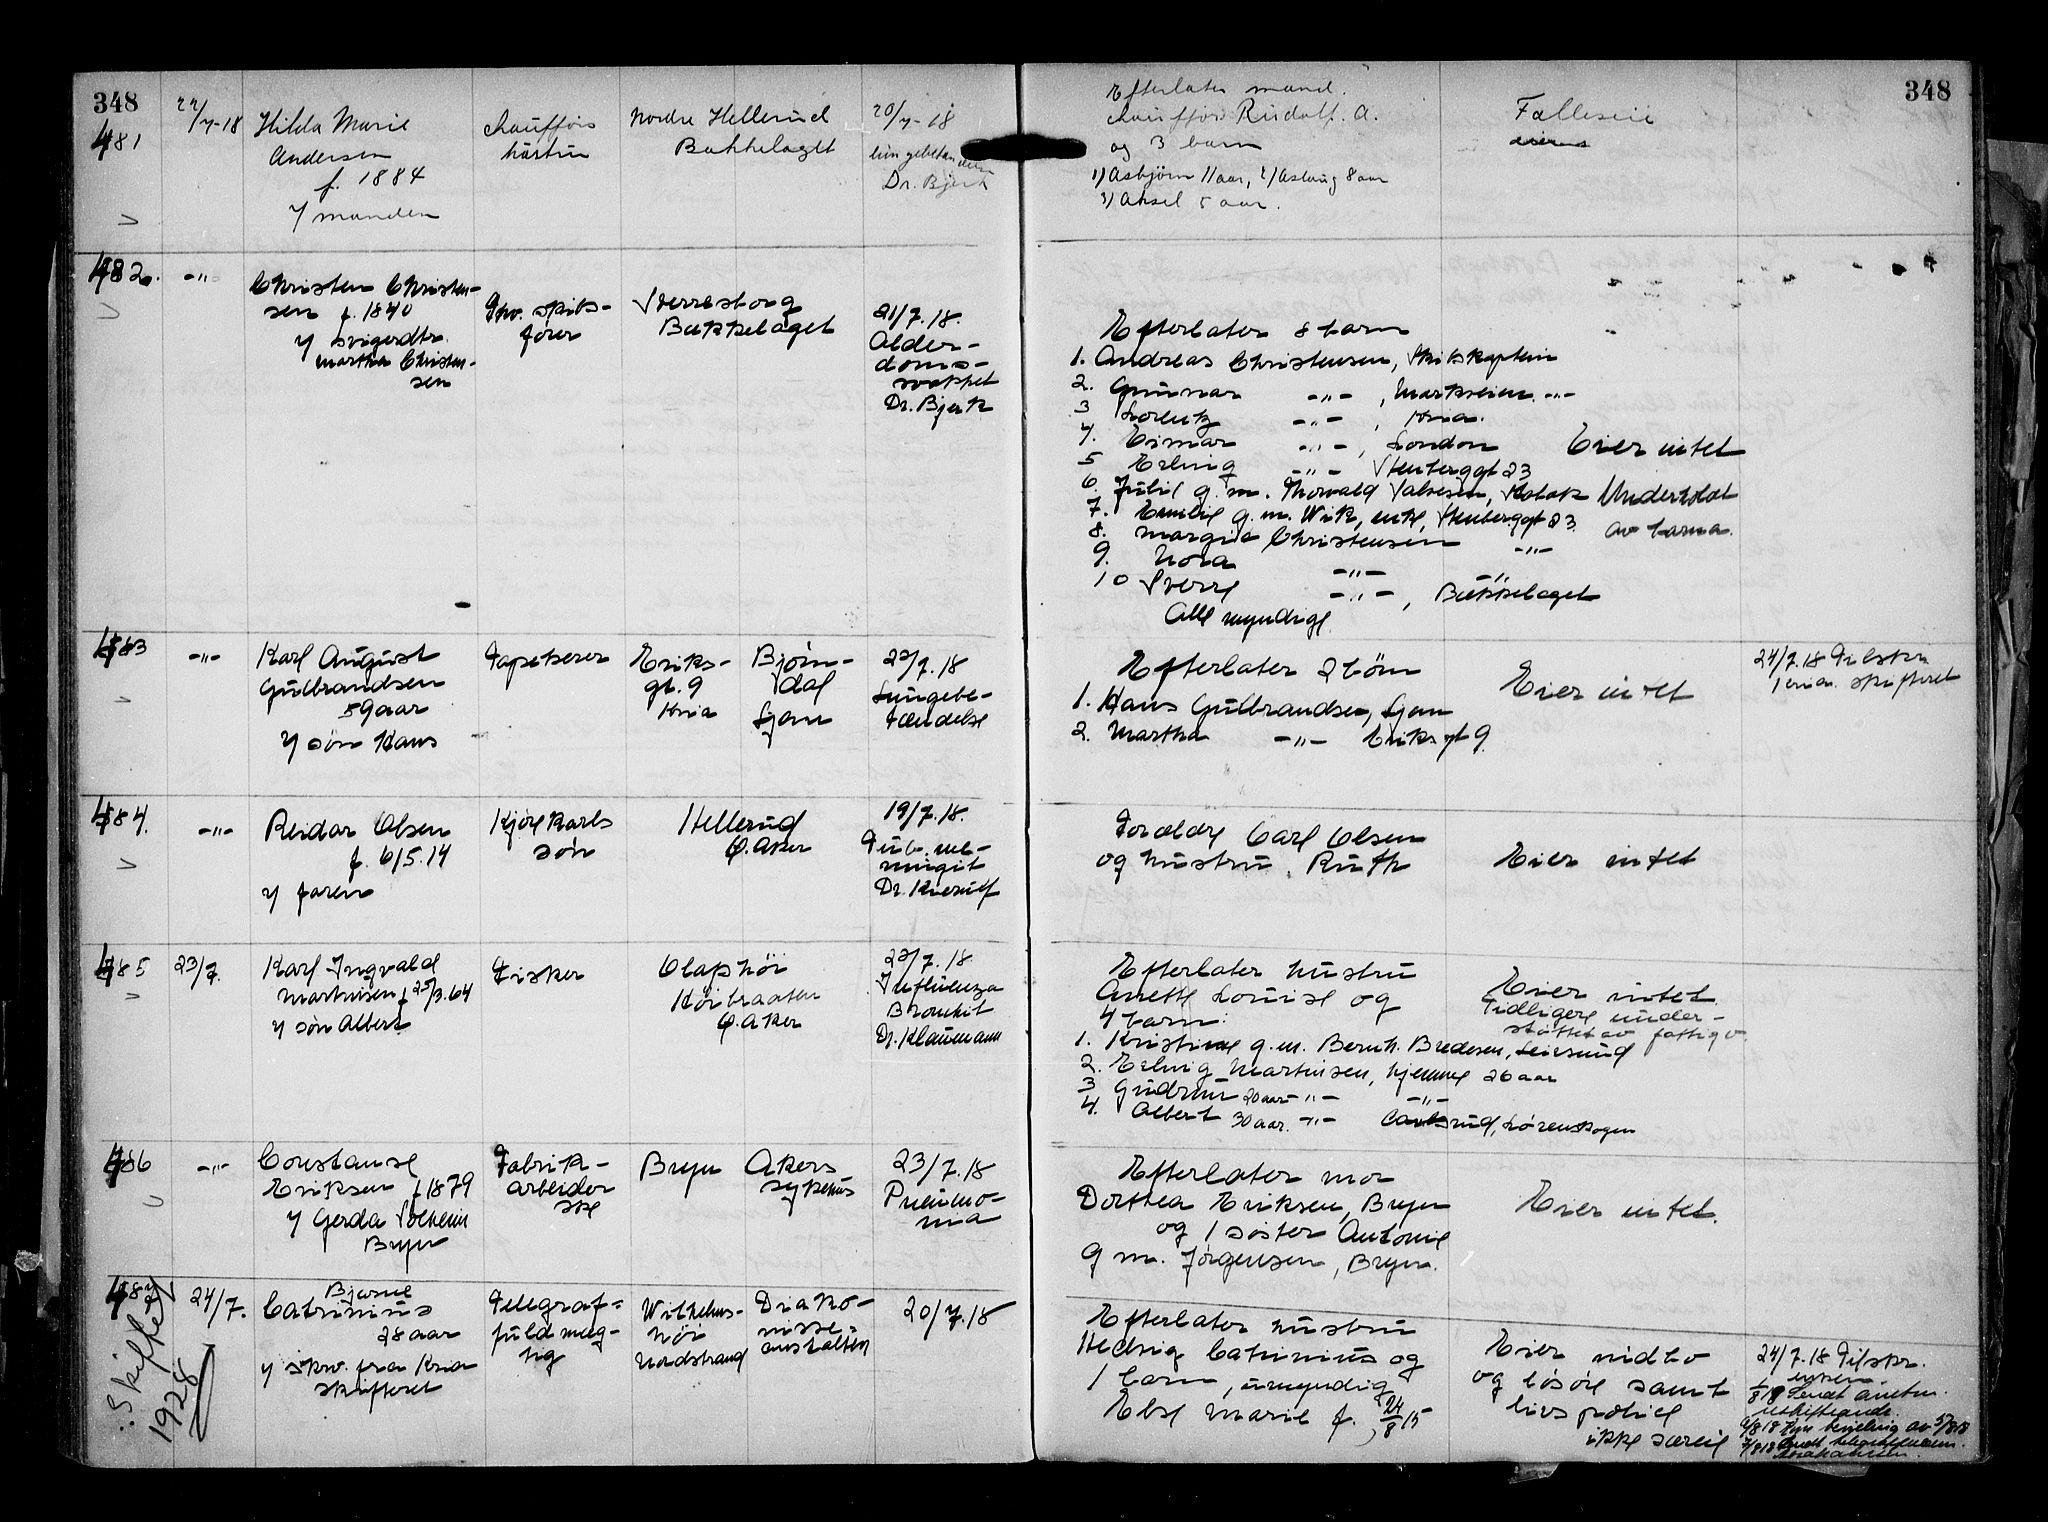 348
348
481
22/7-18
Hilda Marie
Andersen
f. 1884
v/ manden
chaufførs
hustru
Nordre Hellerud
Bækkelaget
20/7-18
Dr. Bjerk
Efterlater mand.
chauffør Rudolf. A.
og 3 barn
1) Asbjørn 11 aar, 2) Aslaug 8 aar
3) Aksel 5 aar.
Fælleseie
482.
-"-
Christen Christen-
sen f. 1840
v/ svigerdtr.
Martha Christen-
sen
Fhv. skibs-
fører
Sverresborg
Bækkelaget
21/7.18.
Alder-
doms-
svakhet
Dr. Bjerk
Efterlater 8 barn
1. Andreas Christensen, Skibskaptein
2. Gunnar -"- , Markveien -"-
3 Lorentz -"- , Kria.
4. Einar -"- , London
5 Erling -"- Stenberggt 23
6. Julie g. m. Thorvald
7. Emilie g. m. Wik, enke, Stenberggt 23.
8. Margit Christensen -"-
9. Nora -"- -"-
10 Sverre -"- , Bækkelaget
Alle myndige
Eier intet
Underholdt
av barna.
483
-"-
Karl August
Gulbrandsen
59 aar
v/ søn Hans
Tapetserer
Eriks-
gt. 9
Kria
Bjørn-
dal
Ljan
22/7.18
Lungebe-
tændelse
Efterlater 2 børn
1. Hans Gulbrandsen, Ljan
2. Martha -"- Eriks gt 9.
Eier intet
24/7.18 Tilskr.
Kria. skifteret
484.
-"-
Reidar Olsen
f. 6/5.14
v/ faren
Kjørekarls
søn
Hellerud
Ø. Aker
19/7.18.
Tub. me-
ningit
Dr. Kierulf
Forældre Carl Olsen
og hustru Ruth
Eier intet
485
23/7.
Karl Ingvald
Martinsen f 25/3.64
v/ søn Albert
Fisker
Olapshøi
Høibraaten
Ø. Aker
22/7.18
Influenza
Bronkit
Dr. Klaumann
Efterlater hustru
Anette Louise og
4 barn:
1. Kristine g. m. Bernh. Bredesen, Leirsund
2. Erling Martinsen, hjemme 26 aar
3 Gudrun 20 aar -"- -"-
4. Albert 30 aar. -"- Lørenskogen
Eier intet
Tidligere under-
støttet av fattigv.
486
-"-
Constanse
Eriksen f 1879
v/ Gerda Solheim
Bryn
Fabrik-
arbeider
ske
Bryn
Akers
sykehus
23/7.18
Pneumo-
nia
Efterlater mor
Dorthea Eriksen, Bryn
og 1 søster Antonie
g m. Jørgensen, Bryn.
Eier intet.
487
Skiftet
1928
24/7.
Bjarne
Catrinius
28 aar
v/ skrv. fra Kria
skifteret
Telegraf-
fuldmæg-
tig
Wilhelms-
høi
Nordstrand
Diako-
nisse
anstalten
20/7.18
Efterlater hustru
Hedvig Catrinius og
1 barn, umyndig
Else Marie f. 24/8 15
Eier indbo
og løsøre samt
livspolice
ikke særeie
24/7.18 Tilskr.
enken.